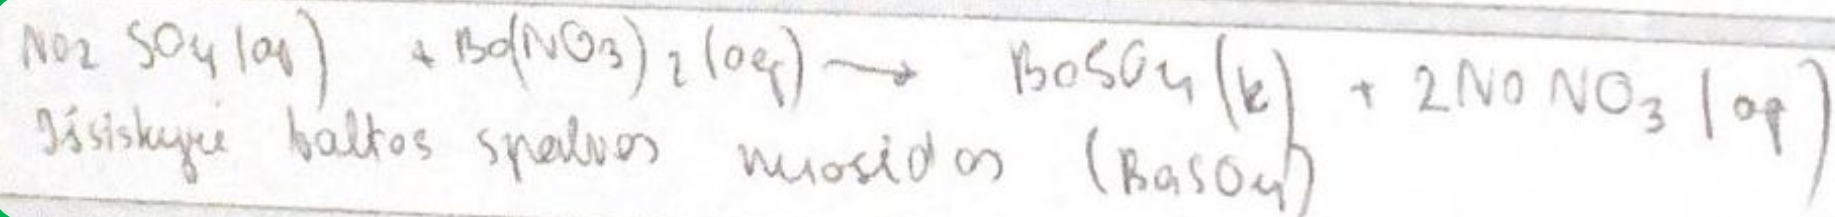 Na2 SO4 (aq) + Ba(NO3)2 (aq) → BaSO4 (k) + 2NaNO3 (aq)
Išsiskyrė baltos spalvos nuosėdos (BaSO4)